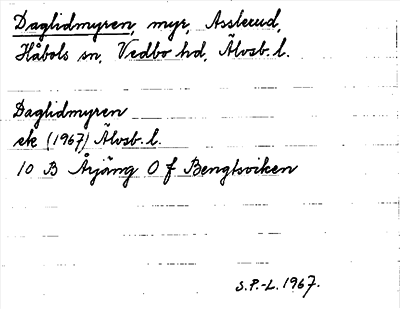 Daglidmyren, myr, Asslerud,
Håbols sn, Vedbo hd, Älvsb. l.
Daglidmyren
ek (1967) Älvsb. l.
10 B Årjäng O f Bengtsviken
S.P.-L. 1967.